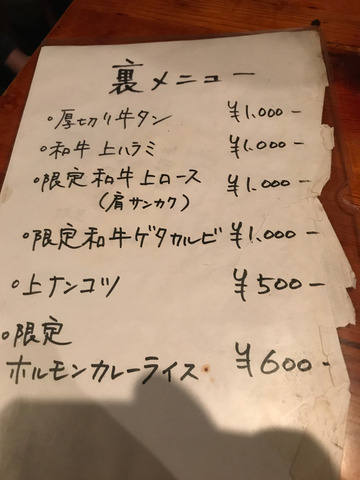 裏メニュー
○厚切り牛タン ¥1,000-
○和牛上ハラミ ¥1,000-
○限定和牛上ロース ¥1,000-
(肩サンカク)
○限定和牛ゲタカルビ ¥1,000-
○上ナンコツ ¥500-
○限定
ホルモンカレーライス ¥600-